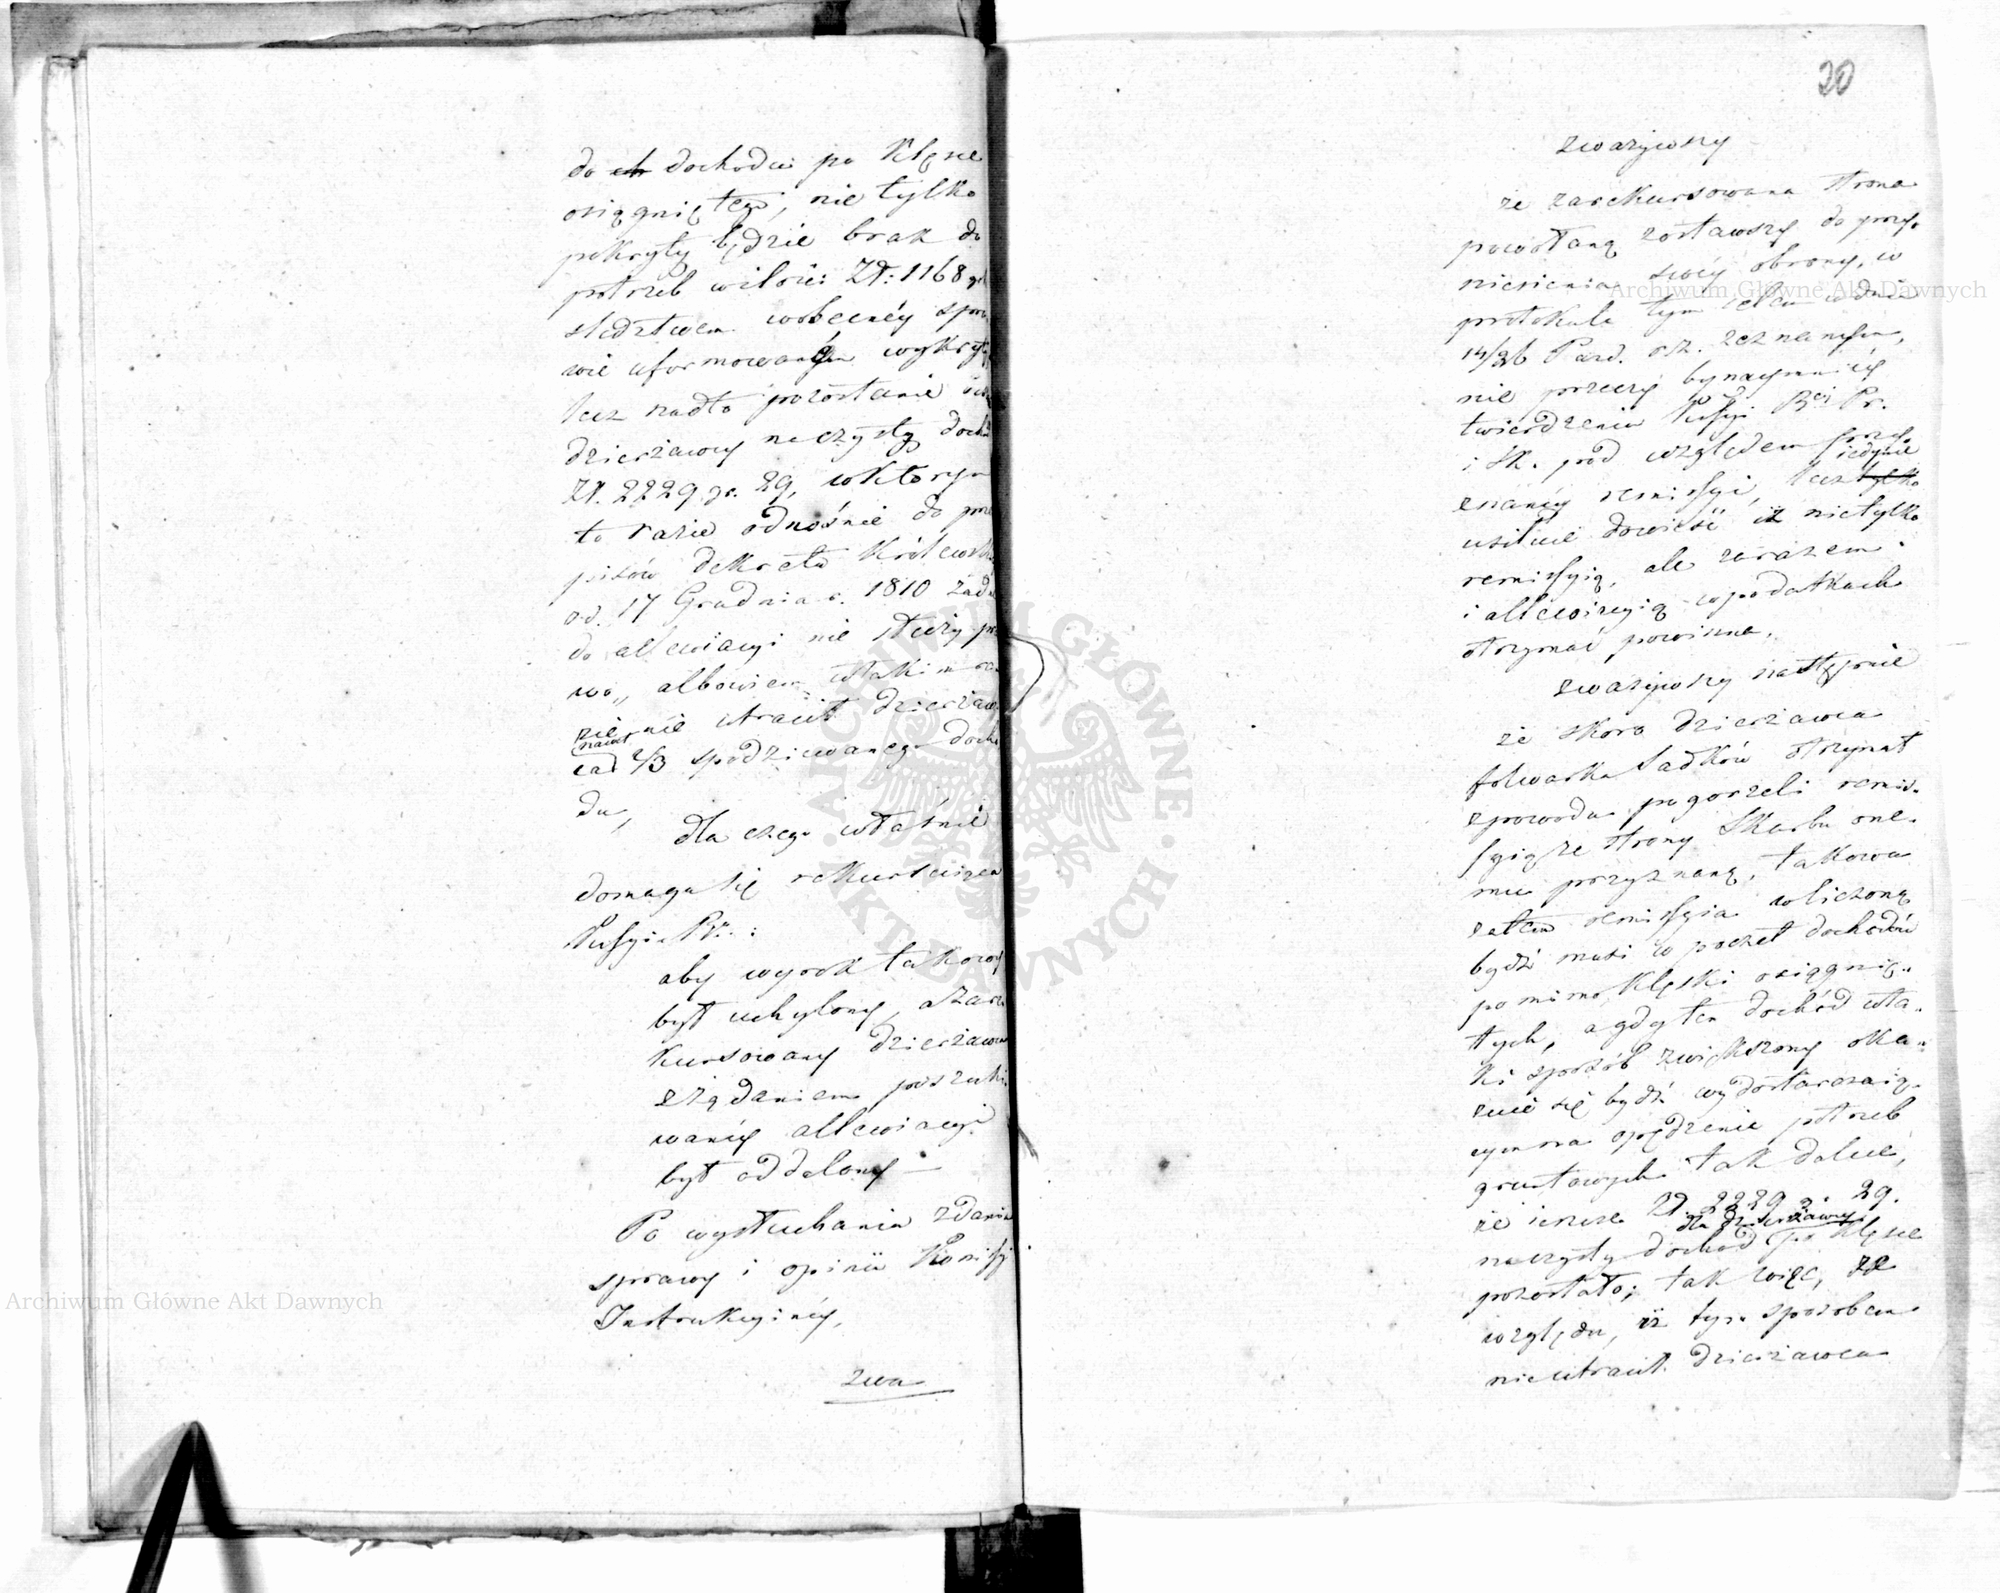 do ch dochodu po klęsce
osiągniętego, nie tylko
pokryty będzie brak do
potrzeb w ilości Zł: 1168 gr
śledztwem w obecnéy spra
wie uformowaném wykryty
lecz nadto pozostanie
dzierżawcy na czysty doch
Zł. 2229 gr. 29, w którym
to razie odnośnie do prze
pisów dekretu Królewsk
od. 17 Grudnia r. 1810 żad
do allewiacyi nie służy pra
wo, albowiem w takim ra
zie nie utracił dzierżaw
nawet
2/3 spodziewanego docho
du,
dla czego właśnie
domaga się rekursuiąca
Kom̃ssyia
aby wyrok takowy
był uchylony, a zare
kursowany dzierżawca
z żądaniem poszuki
wanéy allewiacyi
był oddalony —
Po wysłuchaniu zdania
sprawy i opinii Kom̃issyi
Instrukcyinéy,
zwa
20
zważywszy
że zarekursowana strona
powołaną zostawszy do przy-
niesienia swéy obrony, w
protokule tym celem w dniu
14/26 Paźd. r.z. zeznanym,
nie przeczy bynaymniéy
twierdzeniu Kom̃ssyi Rei Pr.
i Sk. pod względem przy-
iedynie
znanéy remissyi, lecz tylko
usiłuie dowieść iż nietylko
remissyią, ale zarazem
i allewiacyią w podatkach
otrzymać powinna,
zważywszy następnie
że skoro dzierżawca
folwarku Sadków otrzymał
z powodu pogorzeli remis-
syią ze strony Skarbu one-
mu przyznaną, takowa
zatem remissyia wliczoną
bydź musi w poczet dochodów
pomimo klęski osiągnię-
tych, a gdy ten dochód w ta-
ki sposób zwiększony oka-
zuie się bydź wydostarczaią-
cym na opędzenie potrzeb
gruntowych tak dalece,
że ieszcze Zł. 2229 g. 29.
dla dzierżawcy
na czysty dochód po klęsce
pozostało; tak więc, ze
względu, iż tym sposobem
nie utracił dzierżawca